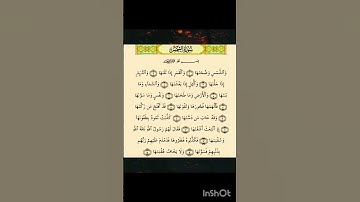 سُورَةُ الشَّمْسِ
بِسْمِ اللَّهِ الرَّحْمَٰنِ الرَّحِيمِ
وَالشَّمْسِ وَضُحَاهَا ۝ وَالْقَمَرِ إِذَا تَلَاهَا ۝ وَالنَّهَارِ
إِذَا جَلَّاهَا ۝ وَاللَّيْلِ إِذَا يَغْشَاهَا ۝ وَالسَّمَاءِ وَمَا
بَنَاهَا ۝ وَالْأَرْضِ وَمَا طَحَاهَا ۝ وَنَفْسٍ وَمَا سَوَّاهَا ۝
فَأَلْهَمَهَا فُجُورَهَا وَتَقْوَاهَا ۝ قَدْ أَفْلَحَ مَن زَكَّاهَا ۝
وَقَدْ خَابَ مَن دَسَّاهَا ۝ كَذَّبَتْ ثَمُودُ بِطَغْوَاهَا ۝
إِذِ انبَعَثَ أَشْقَاهَا ۝ فَقَالَ لَهُمْ رَسُولُ اللَّهِ نَاقَةَ اللَّهِ
وَسُقْيَاهَا ۝ فَكَذَّبُوهُ فَعَقَرُوهَا فَدَمْدَمَ عَلَيْهِمْ رَبُّهُم
بِذَنبِهِمْ فَسَوَّاهَا ۝ وَلَا يَخَافُ عُقْبَاهَا ۝
InShOt